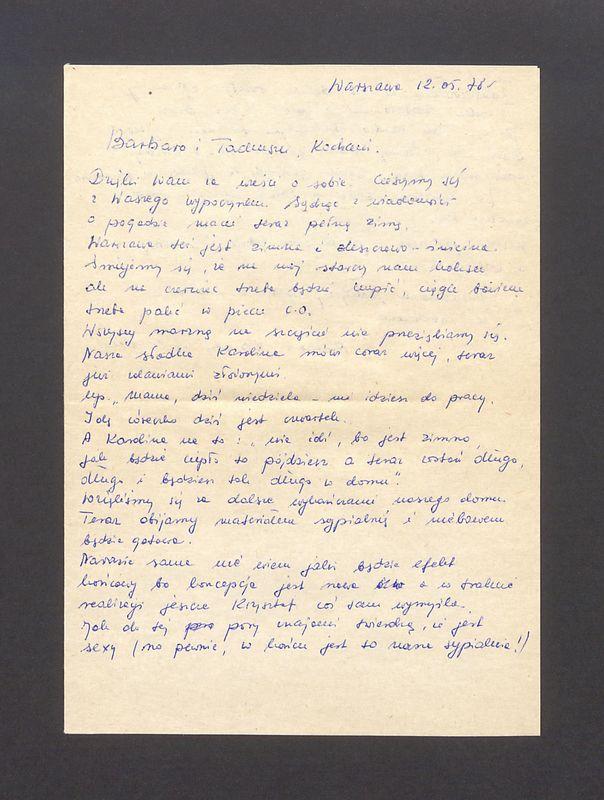 Warszawa 12.05.78r
Barbaro i Tadeuszu, Kochani.
Dzięki Wam za wieści o sobie. Cieszymy się
z Waszego wypoczynku. Sądząc z wiadomości
o pogodzie macie teraz pełną zimę.
Warszawa też jest zimna i deszczowo - śnieżna.
Śmiejemy się, że na maj starczy nam koksu
ale na czerwiec trzeba będzie kupić, ciągle bowiem
trzeba palić w piecu c.o.
Wszyscy marzną na szczęście nie przeziębiamy się.
Nasza słodka Karolina mówi coraz więcej, teraz
już zdaniami złożonymi
np. „Mama, dziś niedziela - nie idziesz do pracy.
Idę córeńko dziś jest czwartek.
A Karolina na to: „nie idź, bo jest zimno,
jak będzie ciepło to pójdziesz a teraz zostań długo,
długo i będziesz tak długo w domu".
Wzięliśmy się za dalsze wykańczanie naszego domu.
Teraz obijamy materiałem sypialnię i niebawem
będzie gotowa.
Narazie sama nie wiem jaki będzie efekt
końcowy bo koncepcja jest nowa a w trakcie
realizacji jeszcze Krzysztof coś tam wymyśla.
Jak do tej pory znajomi twierdzą, że jest
sexy (no pewnie, w końcu jest to nasza sypialnia!)